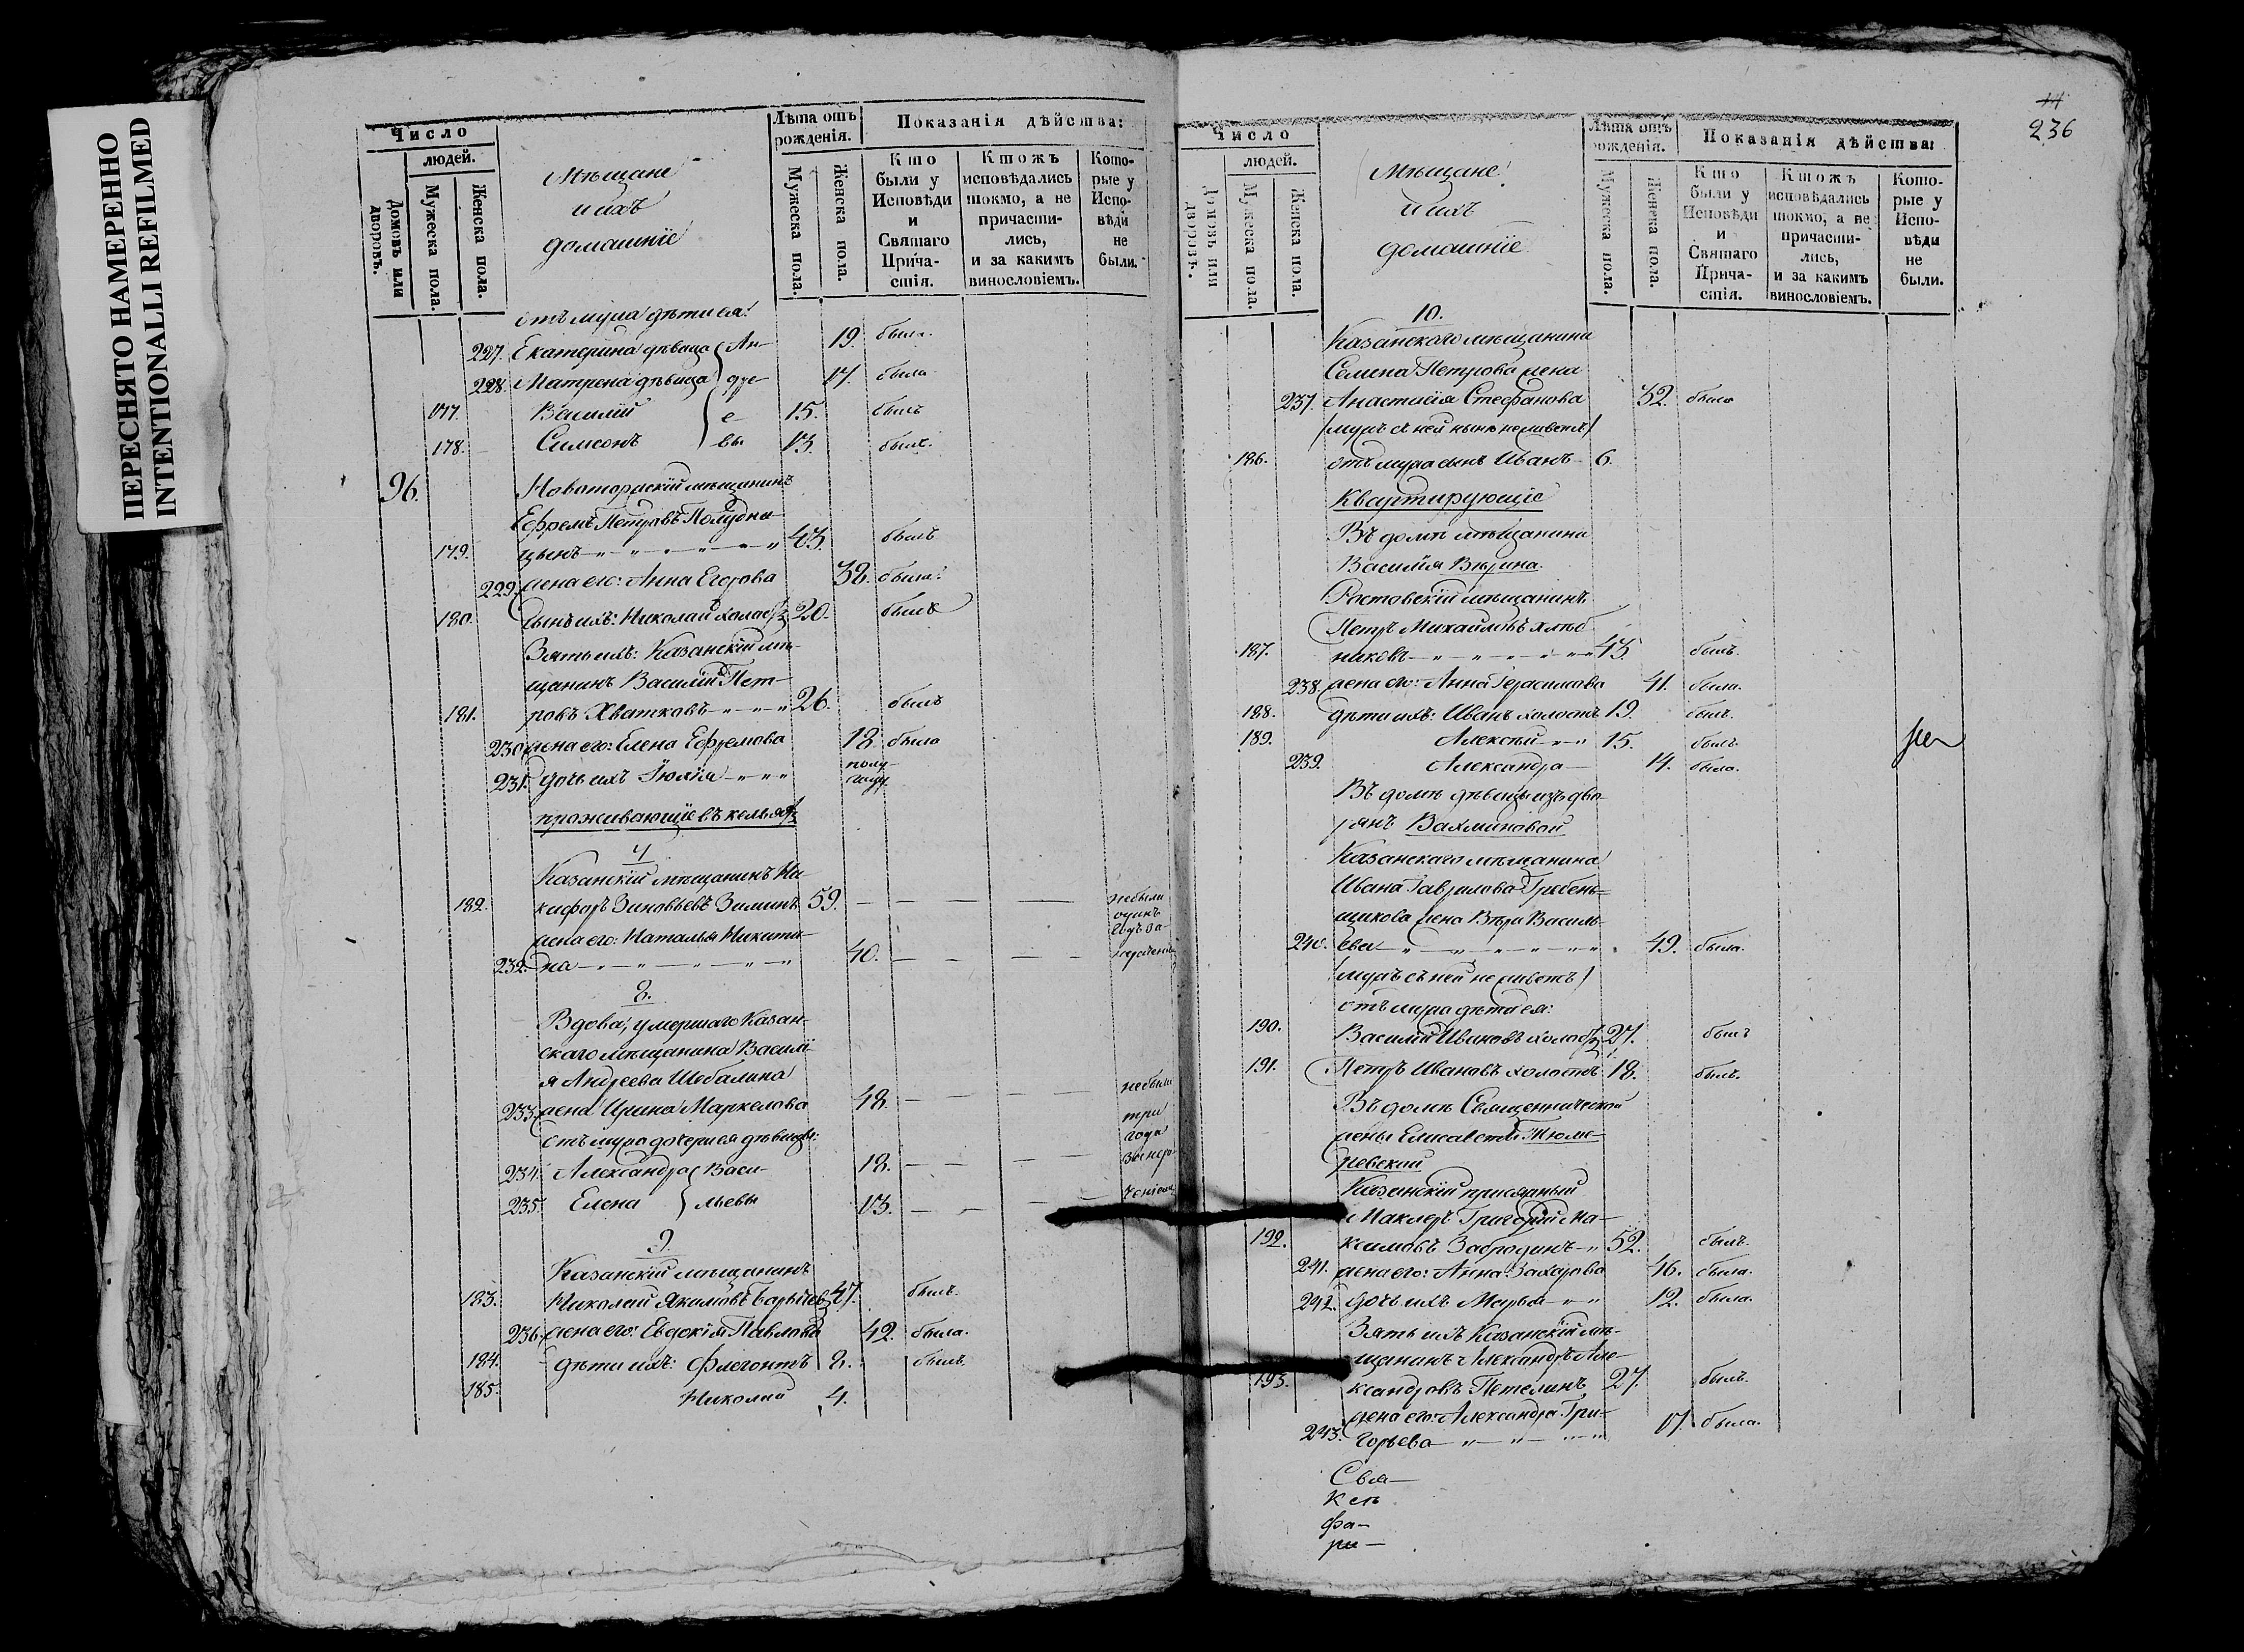 ПЕРЕСНЯТО НАМЕРЕННО
INTENTIONALLI REFILMED
Число
людей.
Домовъ или дворовъ.
Мужеска пола.
Женска пола.
Мѣщане
и ихъ
домашніе
Лѣта отъ рожденія.
Мужеска пола.
Женска пола.
Показанія дѣйства:
Кто были у Исповѣди и Святаго Причастія.
Ктожъ исповѣдались токмо, а не причастились, и за какимъ винословіемъ.
Которые у Исповѣди не были.
отъ мужа дѣти ея:
227. Екатерина дѣвица Ан- 19. была.
228. Матрена дѣвица дре- 17. была
177. Василій е- 15. былъ
178. Симеонъ вы 13. былъ.
96. Новоторжскій мѣщанинъ
Ефремъ Петровъ Полудни-
179. цынъ 43. былъ
229. жена его: Анна Егорова 38. была.
180. сынъ ихъ: Николай холос. 20. былъ
Зять ихъ: Казанскій мѣ-
щанинъ Василій Пет-
181. ровъ Хватковъ 26. былъ
230. жена его: Елена Ефремова 18 была
231. дочь ихъ Іюлія полу-
году
проживающіе въ кельяхъ
7
Казанскій мѣщанинъ Ни-
182. кифоръ Зиновьевъ Зиминъ 59. — — — — небыли
одинъ
годъ за
жена его: Наталья Никити-
232. на 40. — — — — нерачені
8.
Вдова, умершаго Казан-
скаго мѣщанина Василі-
я Андреева Шебалина
233. жена Ирина Маркелова 48. — — — — небыли
три
года
отъ мужа дочери ея дѣвицы:
234. Александра Васи- 18. — — — —
235. Елена льевы 13. — — — —
9.
Казанскій мѣщанинъ
183. Николай Якимовъ 47. былъ.
236. жена его: Евдокія Павлова 42. была.
184. дѣти ихъ: Флегонтъ 8. былъ
185. Николай 4.
14
236
Число
людей.
Домовъ или дворовъ.
Мужеска пола.
Женска пола.
Мѣщане
и ихъ
домашніе
Лѣта отъ рожденія.
Мужеска пола.
Женска пола.
Показанія дѣйства:
Кто были у Исповѣди и Святаго Причастія.
Ктожъ исповѣдались токмо, а не причастились, и за какимъ винословіемъ.
Которые у Исповѣди не были.
10.
Казанского мѣщанина
Семена Петрова жена
237. Анастасія Стефанова 32. была
/мужъ с ней нынѣ не живетъ/
186. отъ мужа сынъ Иванъ 6.
Квартирующіе
Въ домѣ мѣщанина
Василія Вѣрина.
Ростовскій мѣщанинъ
Петръ Михайловъ хлѣб
187. никовъ 43 былъ.
238. жена его: Анна Герасимова 41. была.
188. дѣти ихъ: Иванъ холостъ 19. былъ.
189. Алексѣй 15. былъ.
239. Александра 14. была.
Въ домѣ дѣвицы изъ дво-
рянъ Вахминовой
Казанскаго мѣщанина
Ивана Гаврилова Гребень-
щикова жена Вѣра Василь-
240. ева 49. была.
/мужъ съ ней не живетъ/
отъ мужа дѣти ея:
190. Василій Ивановъ холос. 27. былъ
191. Петръ Ивановъ холостъ 18. былъ.
Въ домѣ Священнической
жены Елисаветы Тюме-
невской
Казанскій присяжный
Маклеръ Григорій Ма-
192. ксимовъ Забродинъ 52. былъ.
241. жена его: Анна Захарова 46. была.
242. дочь ихъ Марья 12. была.
Зять ихъ Казанскій мѣ-
щанинъ Александръ Але-
193. ксандровъ Петелинъ 27. былъ.
жена его: Александра Гри-
243. горьева 17. была.
Свя-
Ксѣ
фа-
ри-